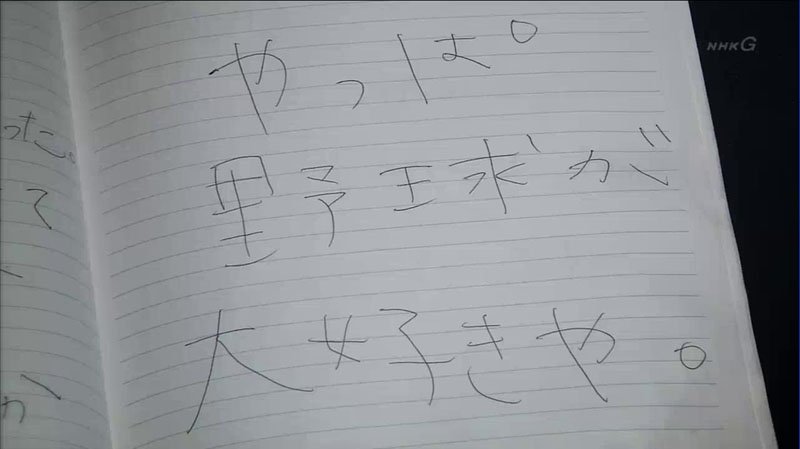 NHK G
やっぱ
野球が
大好きや。
った。
て
か